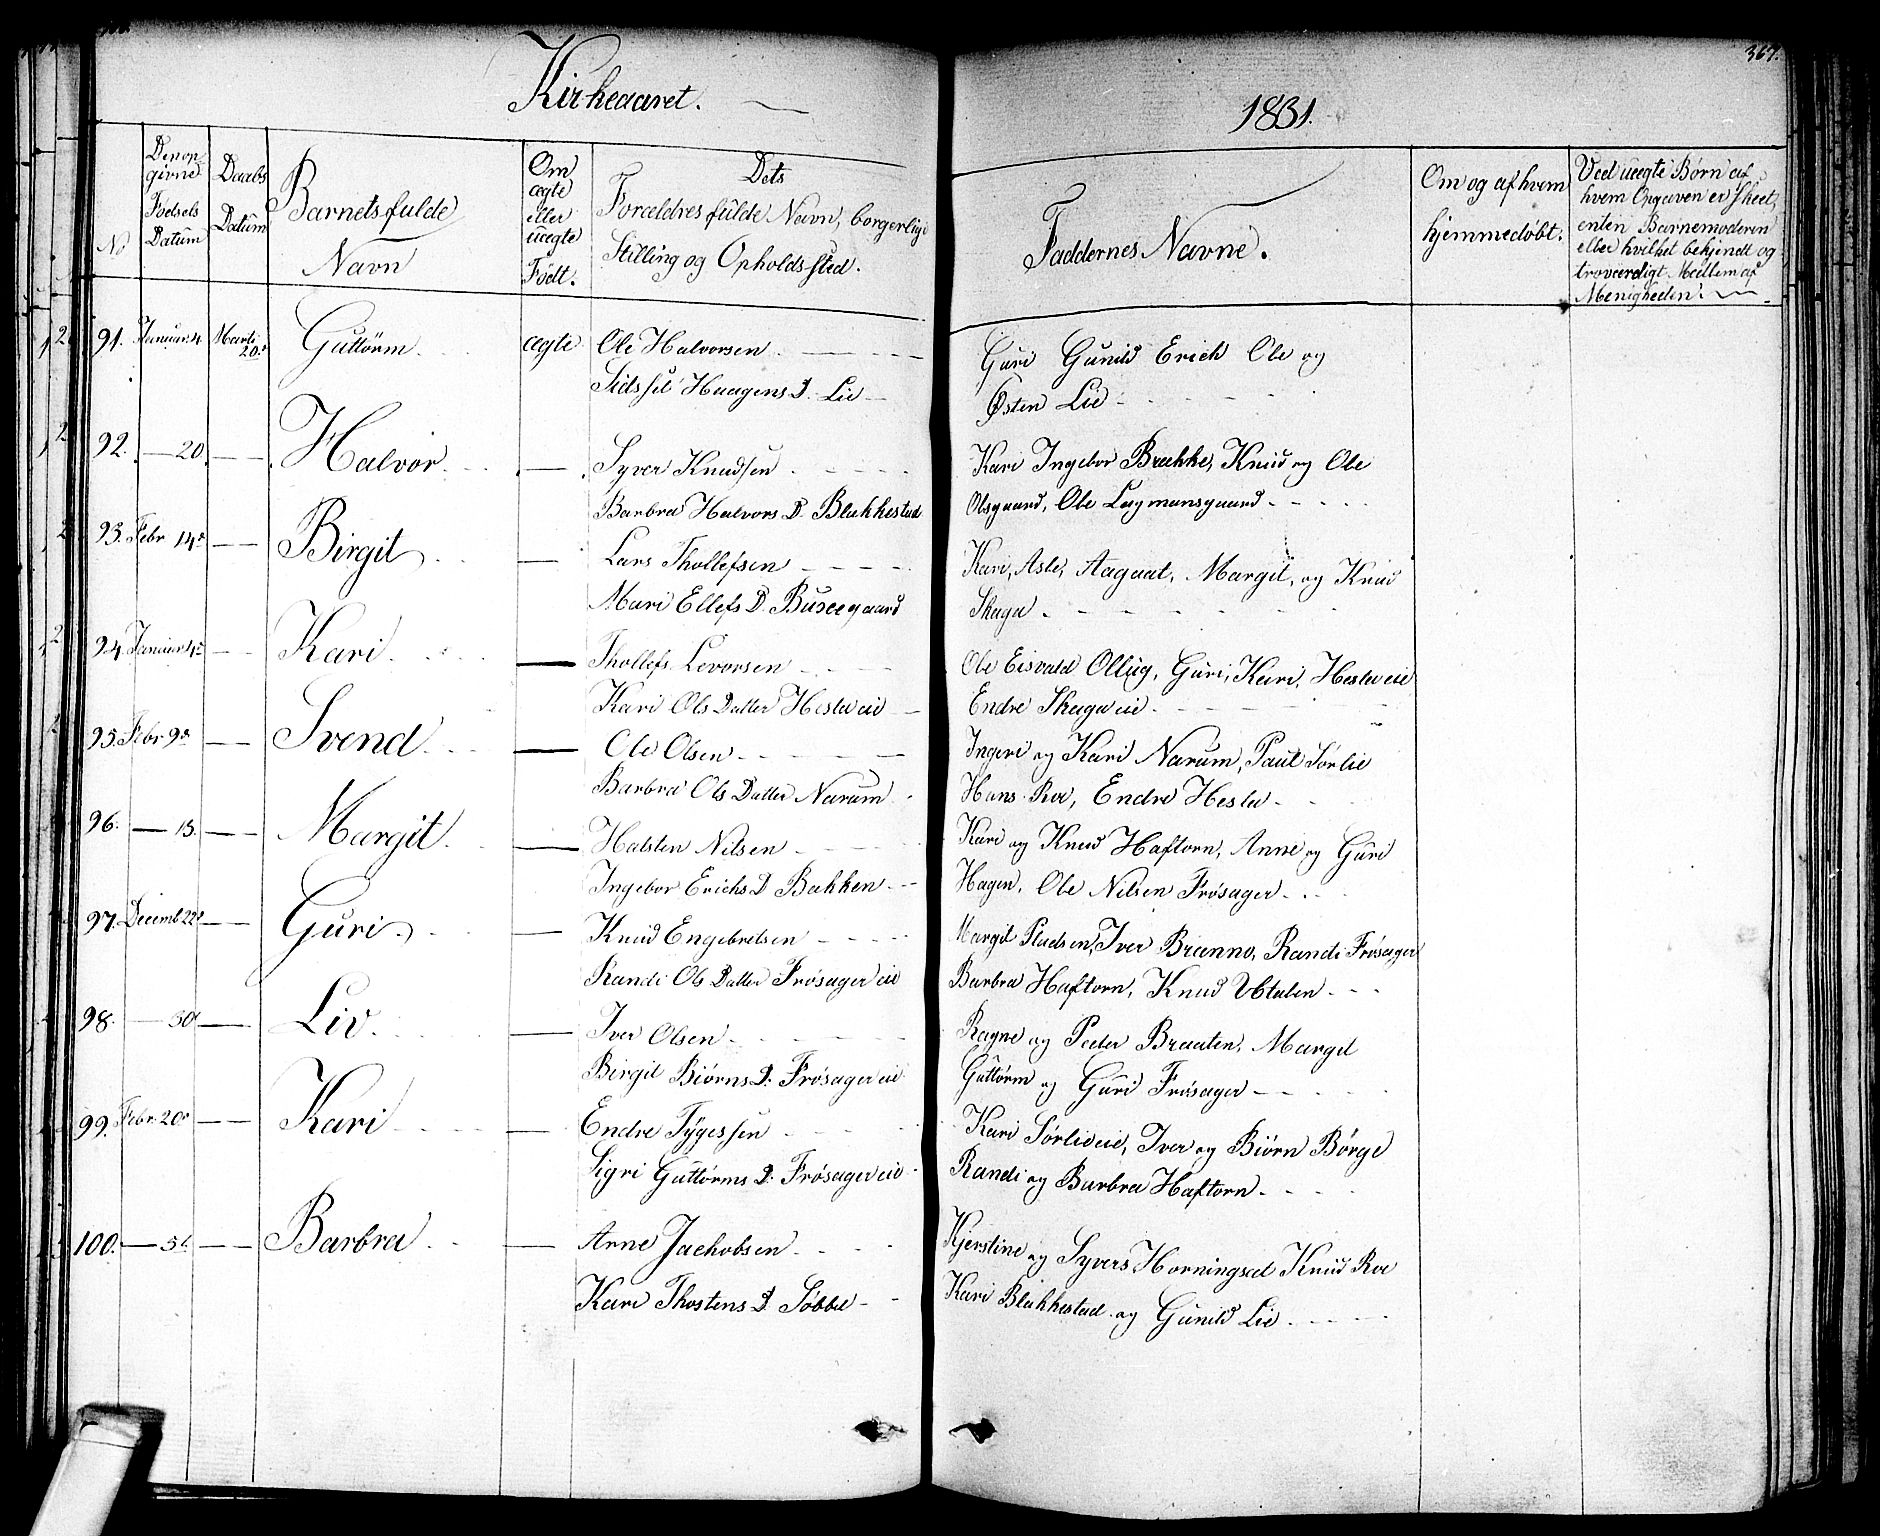 367.
Kirkeaaret.
1831.
No
Den opgivne Fødsels Datum
Daabs Datum
Barnets fulde Navn
Om ægte eller uægte Født.
Dets Forældres fulde Navn, borgerlige Stilling og Opholds-sted.
Faddernes Navne.
Om og af hvem hjemmedøbt.
Ved uægte Børn af hvem Opgaven er Skeet, enten Barnemoderen eller hvilket bekjendt og troværdigt Medlem af Menigheden.
91. Januar 4 Marti 20de Guttorm. ægte Ole Halvorsen Guri Gunild Erich Ole og
Sidssel Haagens D. Lie Østen Lie
92. — 20 — Halvor. — Syver Knudsen Kari Ingebor Brække, Knud og Ole
Barbra Halvors D. Blakkestad Olsgaard, Ole Lagmansgaard
93. Febr 14de — Birgit — Lars Thollefsen Kari, Asle, Aagaat, Margit, og Knud
Mari Ellefs D. Buseegaard Skaga
94. Januar 4de — Kari — Thollefs Levorsen Ole Eisvald Ollug, Guri, Kari, Hesla eie
Kari Ols Datter Hesla eie Endre Skaga eie
95. Febr 9de — Svend — Ole Olsen Ingeri og Kari Narum, Paul Sørlie
Barbra Ols Datter Narum Hans Roe, Endre Hesla
96. — 15. — Margit. — Halsten Nilsen Kari og Knud Haftorn, Anne og Guri
Ingebor Erichs D. Bakken Hagen, Ole Nilsen Frøsager
97. Decemb 22de — Guri — Knud Engebretsen Margit Pladsen, Iver Brænno, Randi Frøsager
Randi Ols Datter Frøsager eie Barbra Haftorn, Knud
98. — 30 — Liv. — Iver Olsen Ragne og Peder Braaten, Margit
Birgit Biørns D. Frøsager eie Guttorm og Guri Frøsager
99. Febr. 20de — Kari — Endre Tygessen Kari Sørlie eie, Iver og Biörn Børge
Sigri Guttorms D. Frøsager eie Randi og Barbra Haftorn
100. — — Barbra — Arne Jachobsen Kjerstine og Syvers Horningsed Knud Roe
Kari Thostens D. Søbbel Kari Blakkestad og Gunild Lie